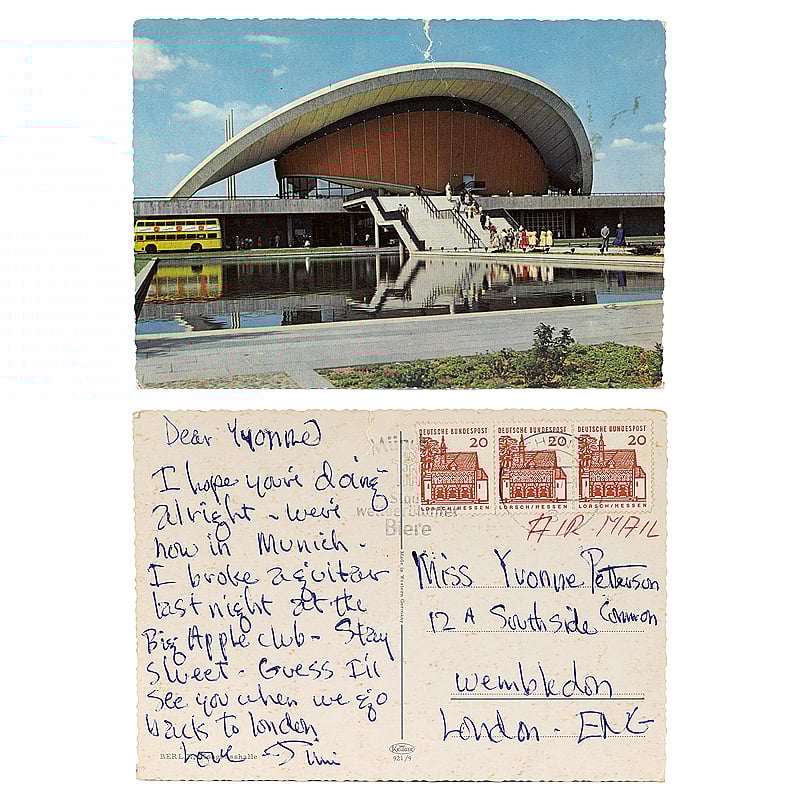 Dear Yvonne
I hope you're doing
alright - we're
now in Munich -
I broke a guitar
last night at the
Big Apple club - Stay
Sweet - Guess I'll
see you when we go
back to london
Love -
BERLIN
DEUTSCHE BUNDESPOST
20
LORSCH/HESSEN
DEUTSCHE BUNDESPOST
20
LORSCH/HESSEN
DEUTSCHE BUNDESPOST
20
LORSCH/HESSEN
Biere
AIR MAIL
Miss Yvonne Petterson
12 A Southside Common
Wembledon
London - ENG
Made in Western Germany
KRÜGER
921/9